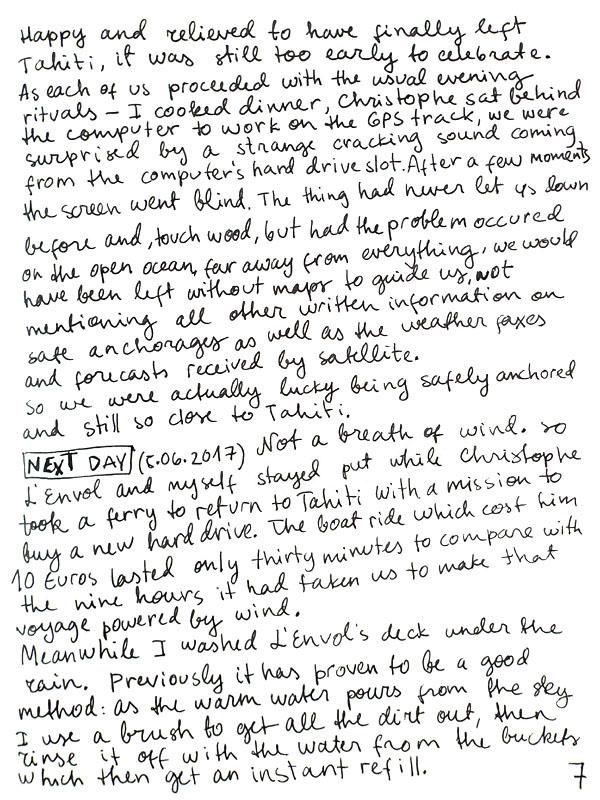 Happy and relieved to have finally left
Tahiti, it was still too early to celebrate.
As each of us proceeded with the usual evening
rituals – I cooked dinner, Christophe sat behind
the computer to work on the GPS track, we were
surprised by a strange cracking sound coming
from the computer's hard drive slot. After a few moments
the screen went blind. The thing had never let us down
before and, touch wood, but had the problem occured
on the open ocean, far away from everything, we would
have been left without maps to guide us, not
mentioning all other written information on
safe anchorages as well as the weather faxes
and forecasts received by satellite.
So we were actually lucky being safely anchored
and still so close to Tahiti.
NEXT DAY (5.06.2017) Not a breath of wind. So
L'Envol and myself stayed put while Christophe
took a ferry to return to Tahiti with a mission to
buy a new hard drive. The boat ride which cost him
10 Euros lasted only thirty minutes to compare with
the nine hours it had taken us to make that
voyage powered by wind.
Meanwhile I washed L'Envol's deck under the
rain. Previously it has proven to be a good
method: as the warm water pours from the sky
I use a brush to get all the dirt out, then
rinse it off with the water from the buckets
which then get an instant refill.
7